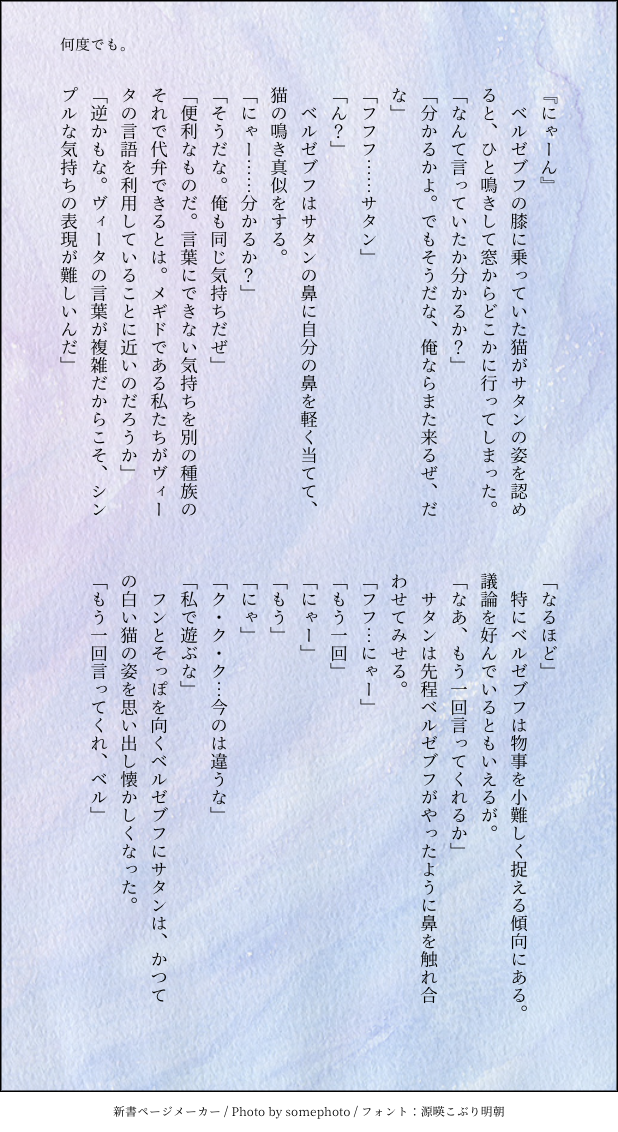 何度でも。
『にゃーん』
　ベルゼブフの膝に乗っていた猫がサタンの姿を認め
ると、ひと鳴きして窓からどこかに行ってしまった。
「なんて言っていたか分かるか？」
「分かるかよ。でもそうだな、俺ならまた来るぜ、だ
な」
「フフフ……サタン」
「ん？」
　ベルゼブフはサタンの鼻に自分の鼻を軽く当てて、
猫の鳴き真似をする。
「にゃー……分かるか？」
「そうだな。俺も同じ気持ちだぜ」
「便利なものだ。言葉にできない気持ちを別の種族の
それで代弁できるとは。メギドである私たちがヴィー
タの言語を利用していることに近いのだろうか」
「逆かもな。ヴィータの言葉が複雑だからこそ、シン
プルな気持ちの表現が難しいんだ」
「なるほど」
　特にベルゼブフは物事を小難しく捉える傾向にある。
議論を好んでいるともいえるが。
「なあ、もう一回言ってくれるか」
　サタンは先程ベルゼブフがやったように鼻を触れ合
わせてみせる。
「フフ…にゃー」
「もう一回」
「にゃー」
「もう」
「にゃ」
「ク・ク・ク…今のは違うな」
「私で遊ぶな」
　フンとそっぽを向くベルゼブフにサタンは、かつて
の白い猫の姿を思い出し懐かしくなった。
「もう一回言ってくれ、ベル」
新書ページメーカー / Photo by somephoto / フォント：源暎こぶり明朝